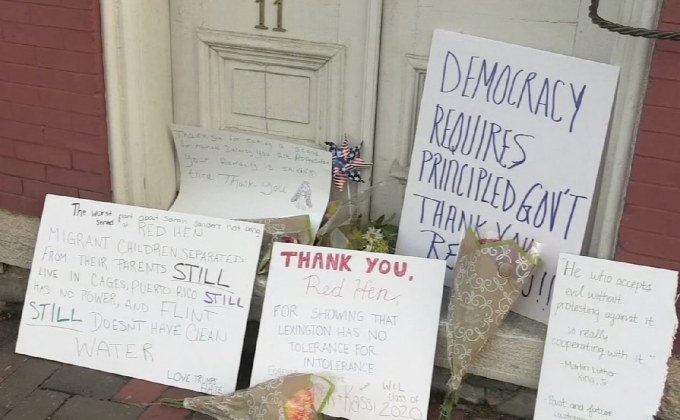 11
Thank you for taking a stand
Thank you
DEMOCRACY
REQUIRES
PRINCIPLED GOV'T
THANK YOU
RE
The worst part about Sarah Sanders not being
served @ RED HEN
MIGRANT CHILDREN SEPARATED
FROM THEIR PARENTS STILL
LIVE IN CAGES, PUERTO RICO STILL
HAS NO POWER, AND FLINT
STILL DOESNT HAVE CLEAN
WATER
LOVE TRUMPS
HATE
THANK YOU,
Red Hen,
FOR SHOWING THAT
LEXINGTON HAS NO
TOLERANCE FOR
INTOLERANCE
W&L
class of
2020
"He who accepts
evil without
protesting against it
is really
cooperating with it."
-Martin Luther
King, Jr
- Past and future